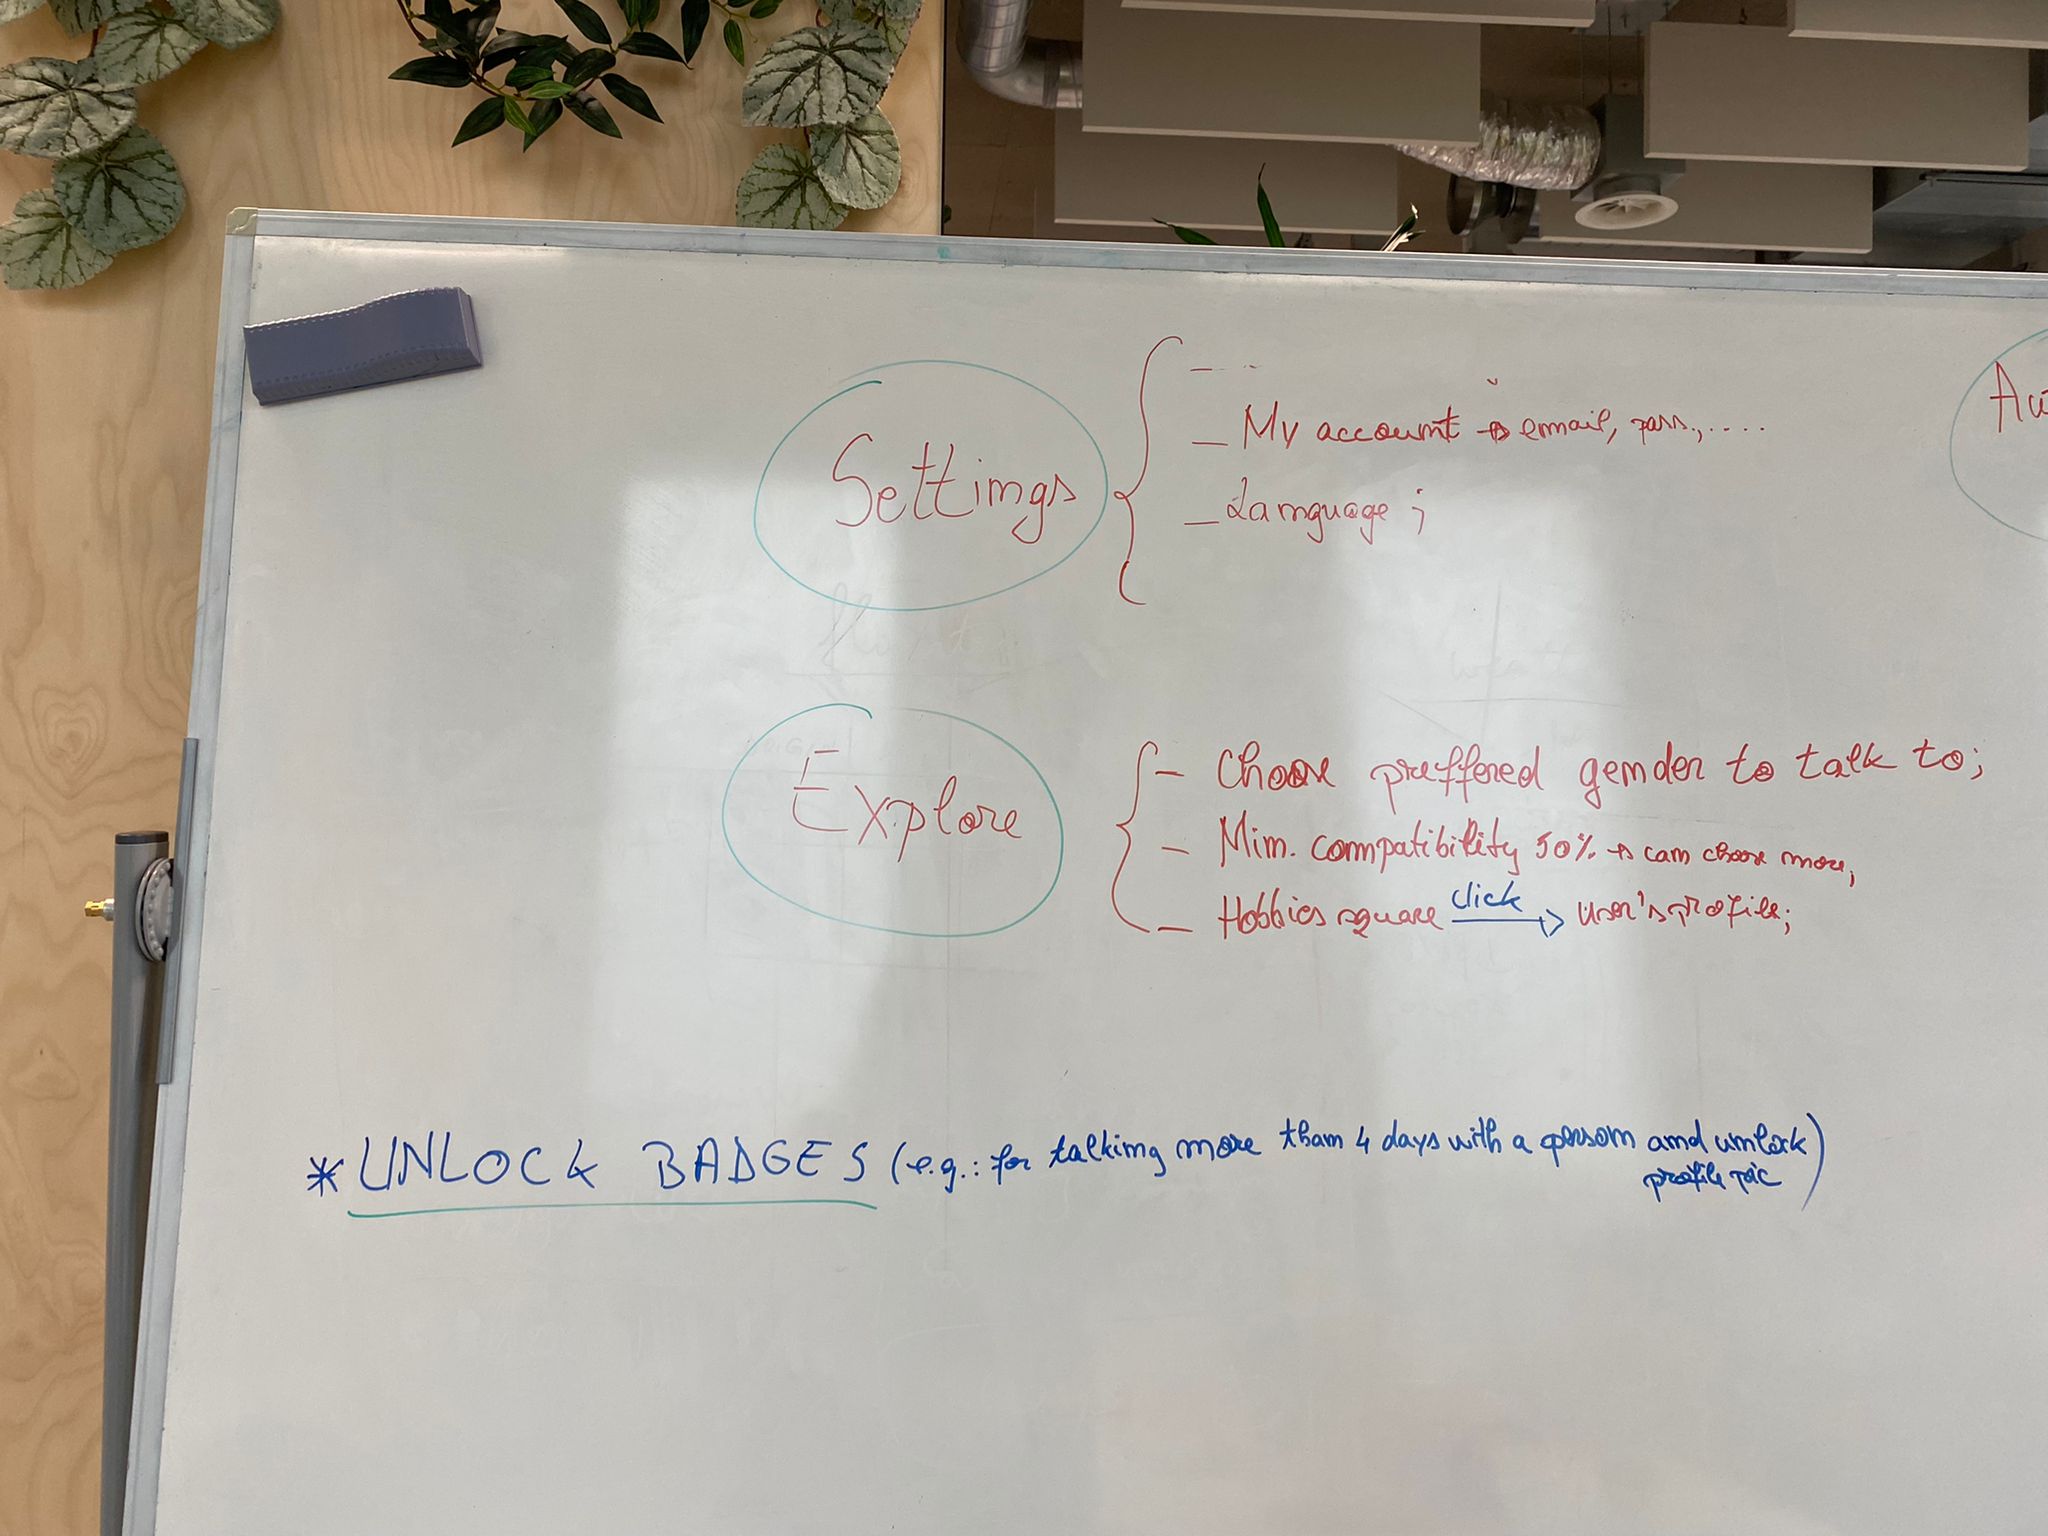 Settings
- ..
- My account → email, pass., ....
- Language ;
Au
Explore
- Choose preffered gender to talk to;
- Min. compatibility 50% → can choose more,
- Hobbies square click → user's profile;
* UNLOCK BADGES (e.g.: for talking more than 4 days with a person and unlock
profile pic)